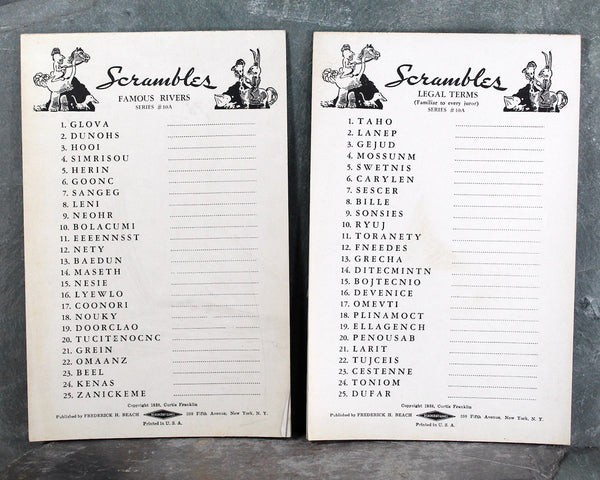 Scrambles
FAMOUS RIVERS
SERIES #10A
1. GLOVA
2. DUNOHS
3. HOOI
4. SIMRISOU
5. HERIN
6. GOONC
7. SANGEG
8. LENI
9. NEOHR
10. BOLACUMI
11. EEEENNSST
12. NETY
13. BAEDUN
14. MASETH
15. NESIE
16. LYEWLO
17. COONORI
18. NOUKY
19. DOORCLAO
20. TUCITΣNOCNC
21. GREIN
22. OMAANZ
23. BEEL
24. KENAS
25. ZANICKEME
Copyright 1938, Curtis Franklin
Published by FREDERICK H. BEACH 210 Fifth Avenue, New York, N. Y.
Printed in U. S. A.
Scrambles
LEGAL TERMS
(Familiar to every juror)
SERIES #10A
1. TAHO
2. LANEP
3. GEJUD
4. MOSSUNM
5. SWETNIS
6. CARYLEN
7. SESCER
8. BILLE
9. SONSIES
10. RYUJ
11. TORANETY
12. FNEEDES
13. GRECHA
14. DITECMINTN
15. BOJTECNIO
16. DEVENICE
17. OMEVTI
18. PLINAMOCT
19. ELLAGENCH
20. PENOUSAB
21. LARIT
22. TUJCEIS
23. CESTENNE
24. TONIOM
25. DUFAR
Copyright 1938, Curtis Franklin
Published by FREDERICK H. BEACH 210 Fifth Avenue, New York, N. Y.
Printed in U. S. A.